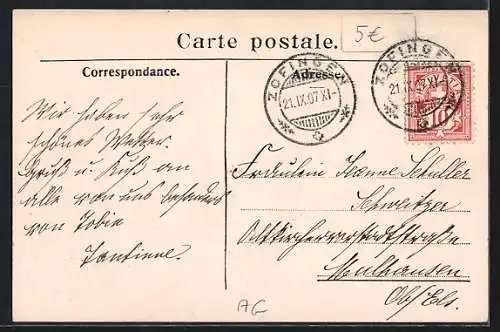 5€
Carte postale.
Correspondance.
Adresse.
ZOFINGEN
21.IX.07 XI-
ZOFINGEN
21.IX.07 XI-
10
Wir haben sehr
schönes Wetter.
Gruß u. Kuß an
alle von uns besonders
von Tobie
Fräulein Jeanne Schuller
Schweitzer
Altkircherverstadtstraße
Mülhausen
Ob/Els.
AG